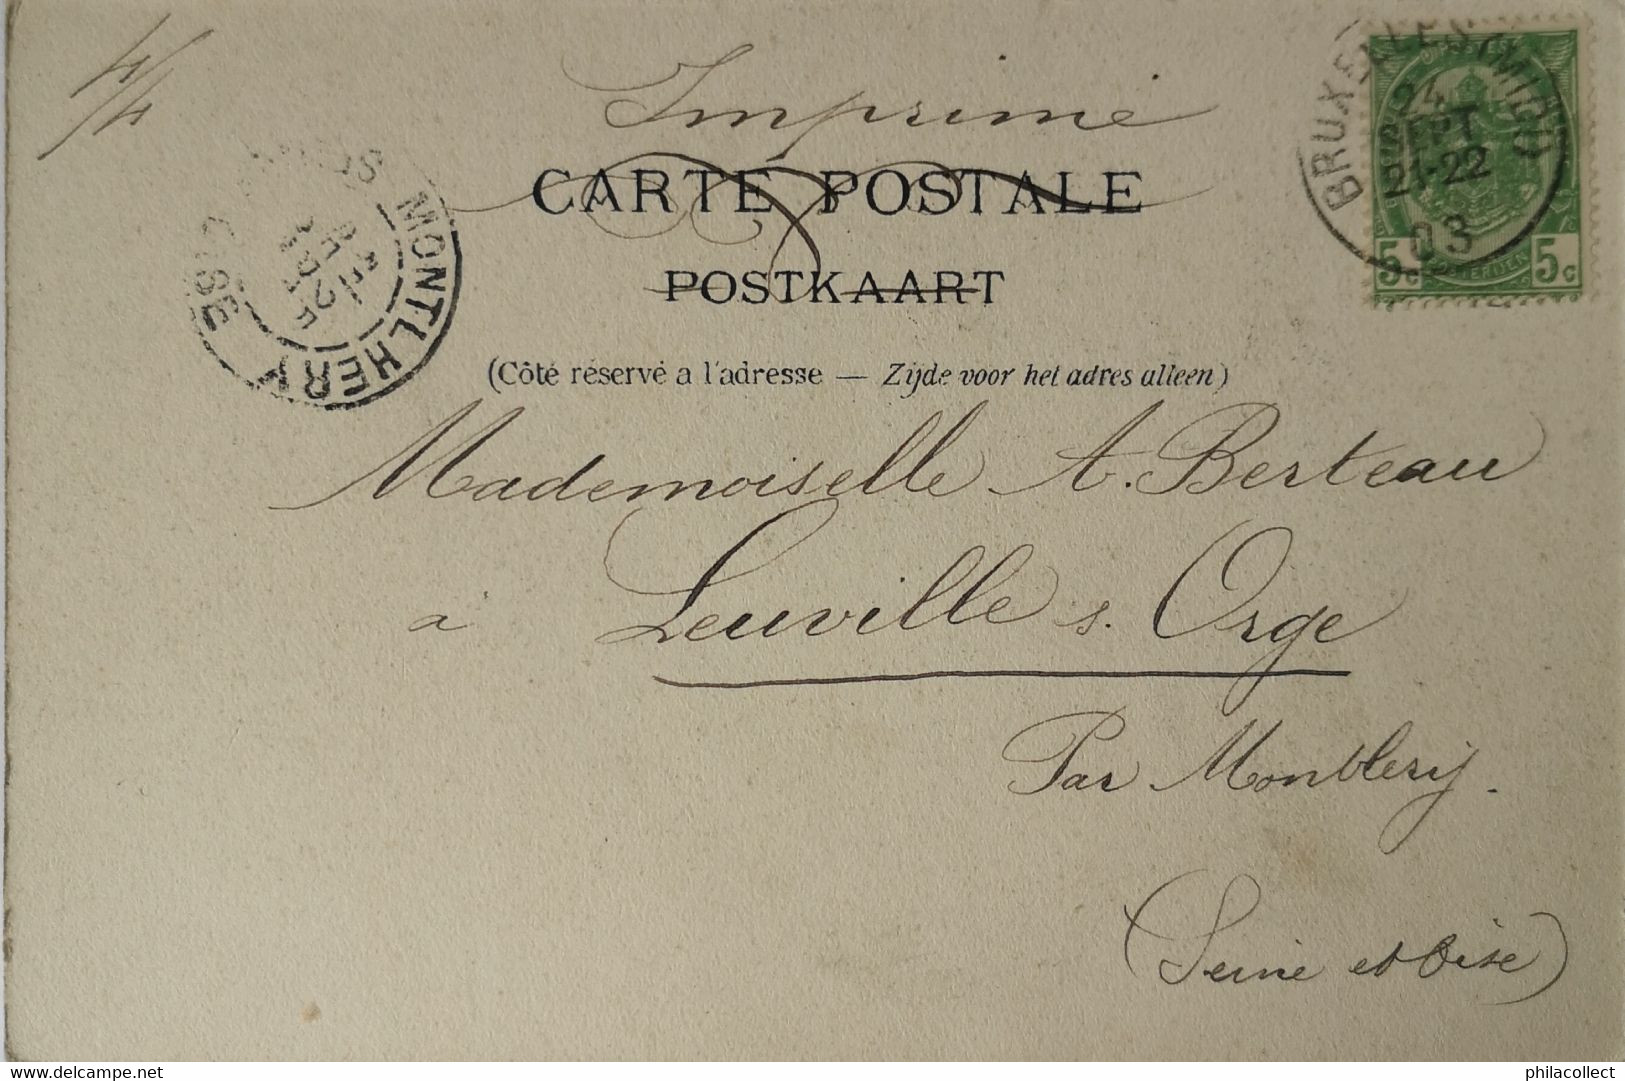 4/4
Imprimé
CARTE POSTALE
POSTKAART
(Côté réservé a l'adresse — Zijde voor het adres alleen)
BRUXELLES (MIDI)
24
SEPT
21-22
03
5c 5c
MONTLHERY
OISE
25
SEPT
Mademoiselle A. Berteau
à Leuville s. Orge
Par Montlery.
(Seine et Oise)
Delcampe.net
philacollect